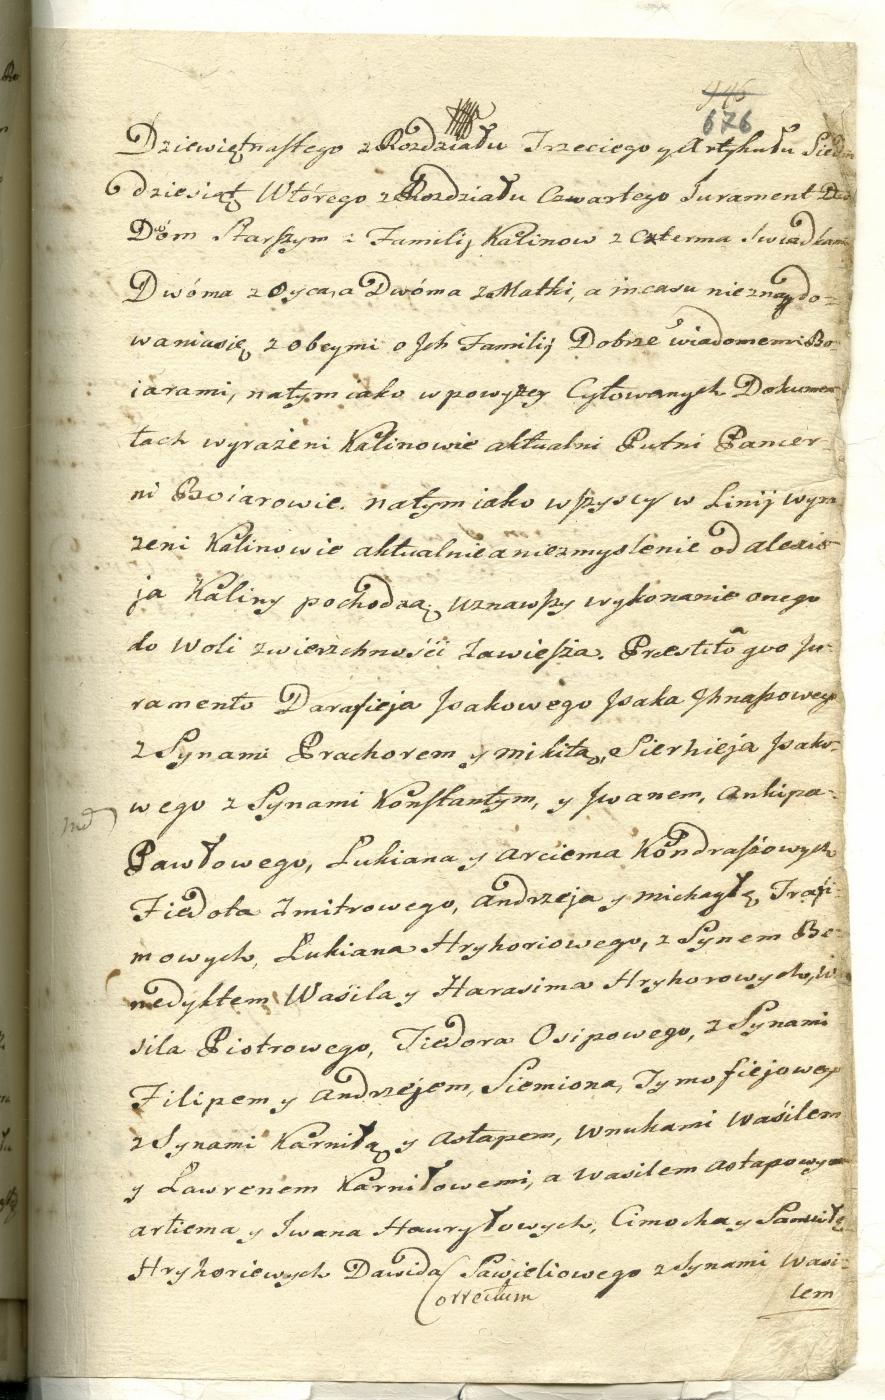 676
Dziewiętnastego z Rozdziału Trzeciego y Artykułu Siedm
dziesiąt Wtórego z Rozdziału Czwartego Jurament Dwó
Dóm Starszym z Familij Kalinow z Czterma Swiadkami
Dwóma z Oyca, a Dwóma z Matki, a in casu nieznaydo-
wania się z obcymi o Jch Familij Dobrze wiadomemi Bo-
iarami, na tym iako w powyzey Cytowanych Dokumen
tach wyrażeni Kalinowie aktualni Putni Pancer-
ni Boiarowie. na tym iako wszyscy w Linij wyra
żeni Kalinowie aktualnie a niezmyslenie od Alexie-
ja Kaliny pochodzą, uznawszy wykonanie onego
do woli zwierzchnośći zawiesza. Prestito quo Ju-
ramento Darafieja Jsakowego Jsaka Jhnatowego
z Synami Prachorem y Mikitą, Sierhieja Jsako-
wego z Synami Konstantym, y Jwanem, Ankipa
Pawłowego, Lukiana y Arciema Kondraszowych
Fiedota Zmitrowego, Andrzeja y Michayłę Trafi-
mowych, Lukiana Hryhoriowego, z Synem Be-
nedyktem Waśila y Harasima Hryhorowych, Wa
sila Piotrowego, Fiedora Osipowego, z Synami
Filipem y Andrzejem, Siemiona, Tymofiejowego
z Synami Karniłą y Astapem, wnukami Waśilem
y Lawrenem Karniłowemi, a Wasilem Astapowym
Artiema y Jwana Hauryłowych, Cimocha y Samuiłę
Hryhoriewych Dawida Sawieliowego z Synami Wasi-
lem
Correctum